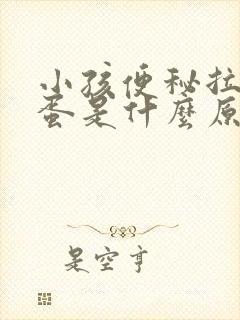 小孩便秘拉
蛋是什麼原
是空亨